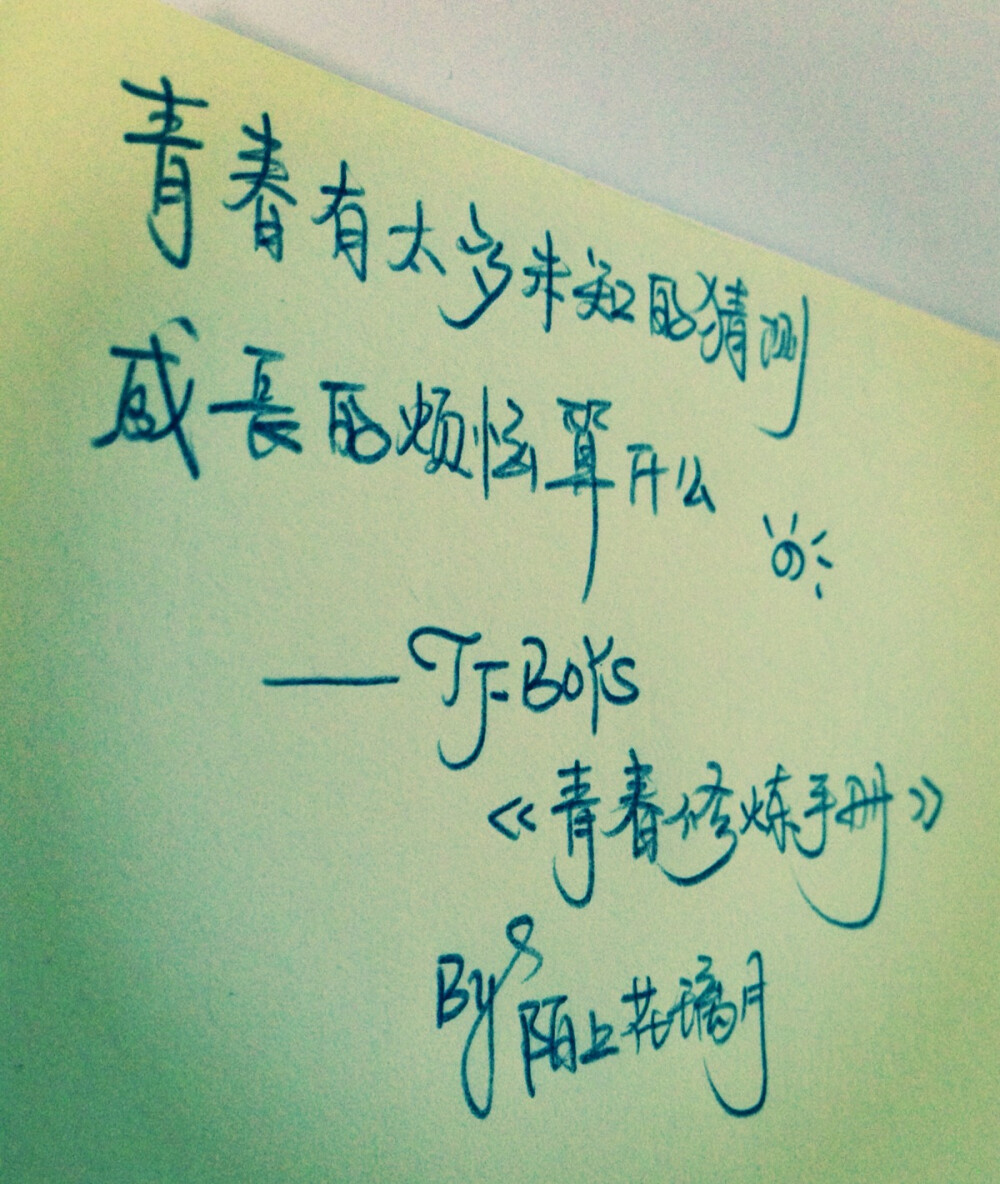 青春有太多未知的猜测
成長的烦恼算什么
——TFBOYS
《青春修炼手册》
By 陌上花璃月